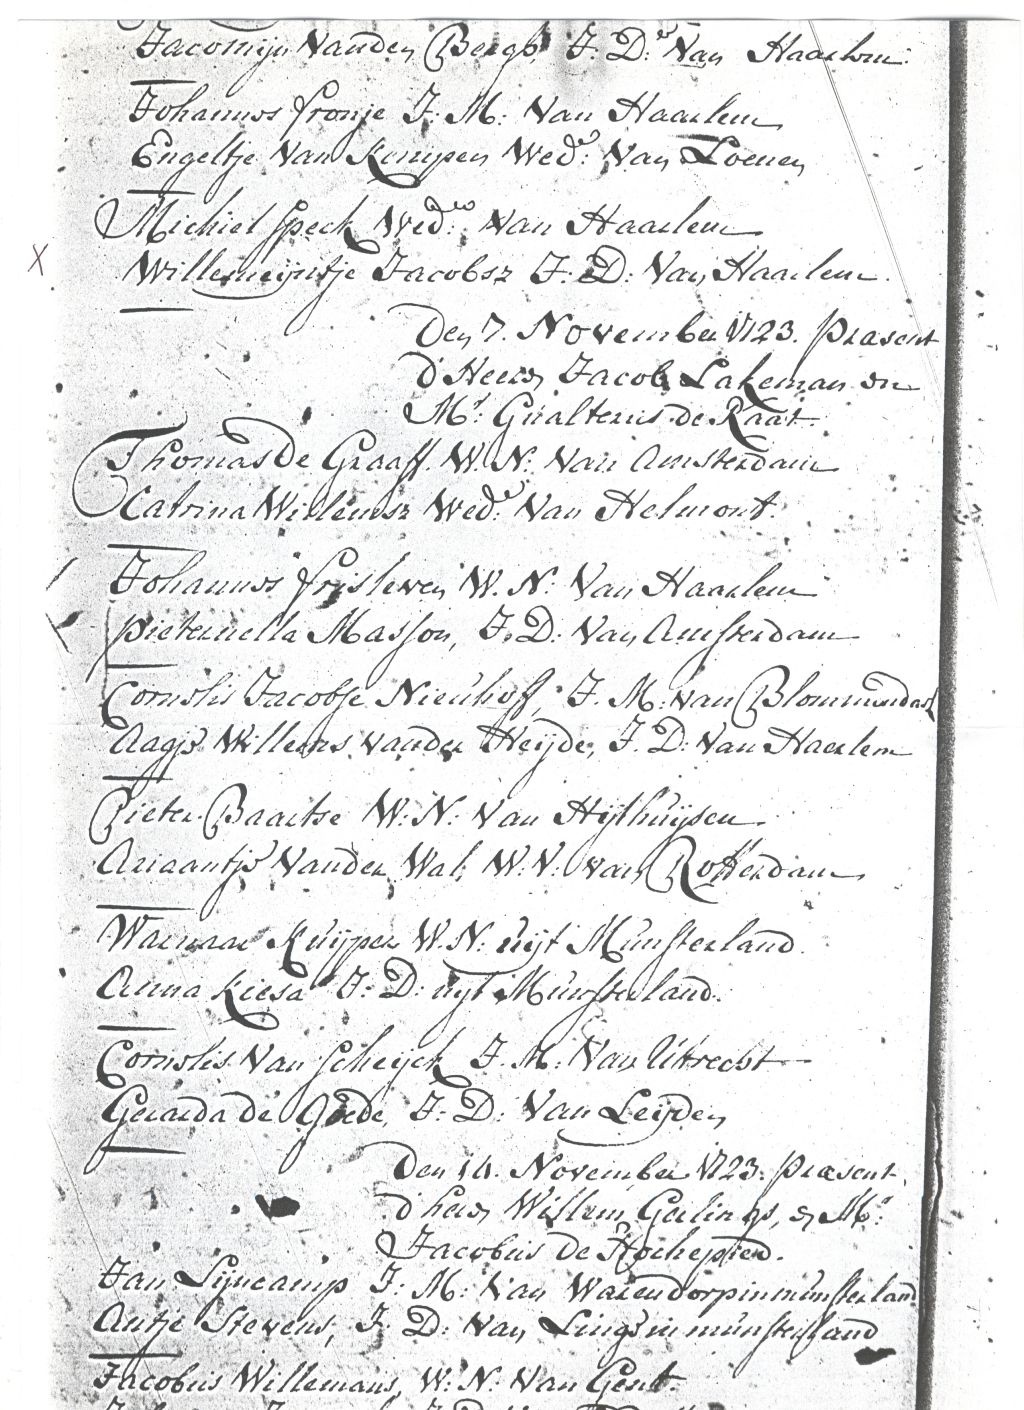 Jacomijn Vanden Bergh J. D: Van Haarlem
Johannes fronje J: M: Van Haarlem
Engeltje Van Kempen Wed: Van Loenen
Michiel Speck Wed: Van Haarlem
X
Willemeijntje Jacobsz J: D: Van Haarlem.
Den 7. November 1723. Præsent
d'Heeren Jacob Lakeman en
Mr. Gualterus de Raat.
Thomas De Graaff. W. N: Van Amsterdam
Catrina Willemsz Wed: Van Helmont.
Johannes frisleven W. N: Van Haarlem
Pieternella Masson, J. D: Van Amsterdam
Cornelis Jacobse Nieuhof, J. M: van Blommendael
Aagje Willems vander Heijde, J. D: Van Haerlem
Pieter Baartse W: N: Van Hijthuijsen.
Ariaantje Vander Wal, W: N: van Rotterdam
Warnaar Kuijper W. N: uijt Munsterland.
Anna Kiesa J: D: uijt Munsterland.
Cornelis Van Scheijck J. M: Van Uttrecht
Gerarda de Goede, J: D: Van Leijden
Den 14. November 1723. Præsent.
d'heren Willem Geelings, en Mr:
Jacobus De Hochepied.
Jan Lijncamp J: M: Van Warendorp in munsterland
Antje Stevens, J. D: Van Linge in munsterland
Jacobus Willemans, W: N: Van Gent.